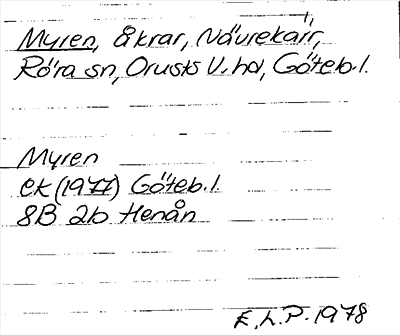 Myren, åkrar, Nävrekärr,
Röra sn, Orusts V. hd, Göteb. l.
Myren
ek (1977) Göteb. l.
8B 2b Henån
E. L. P. 1978